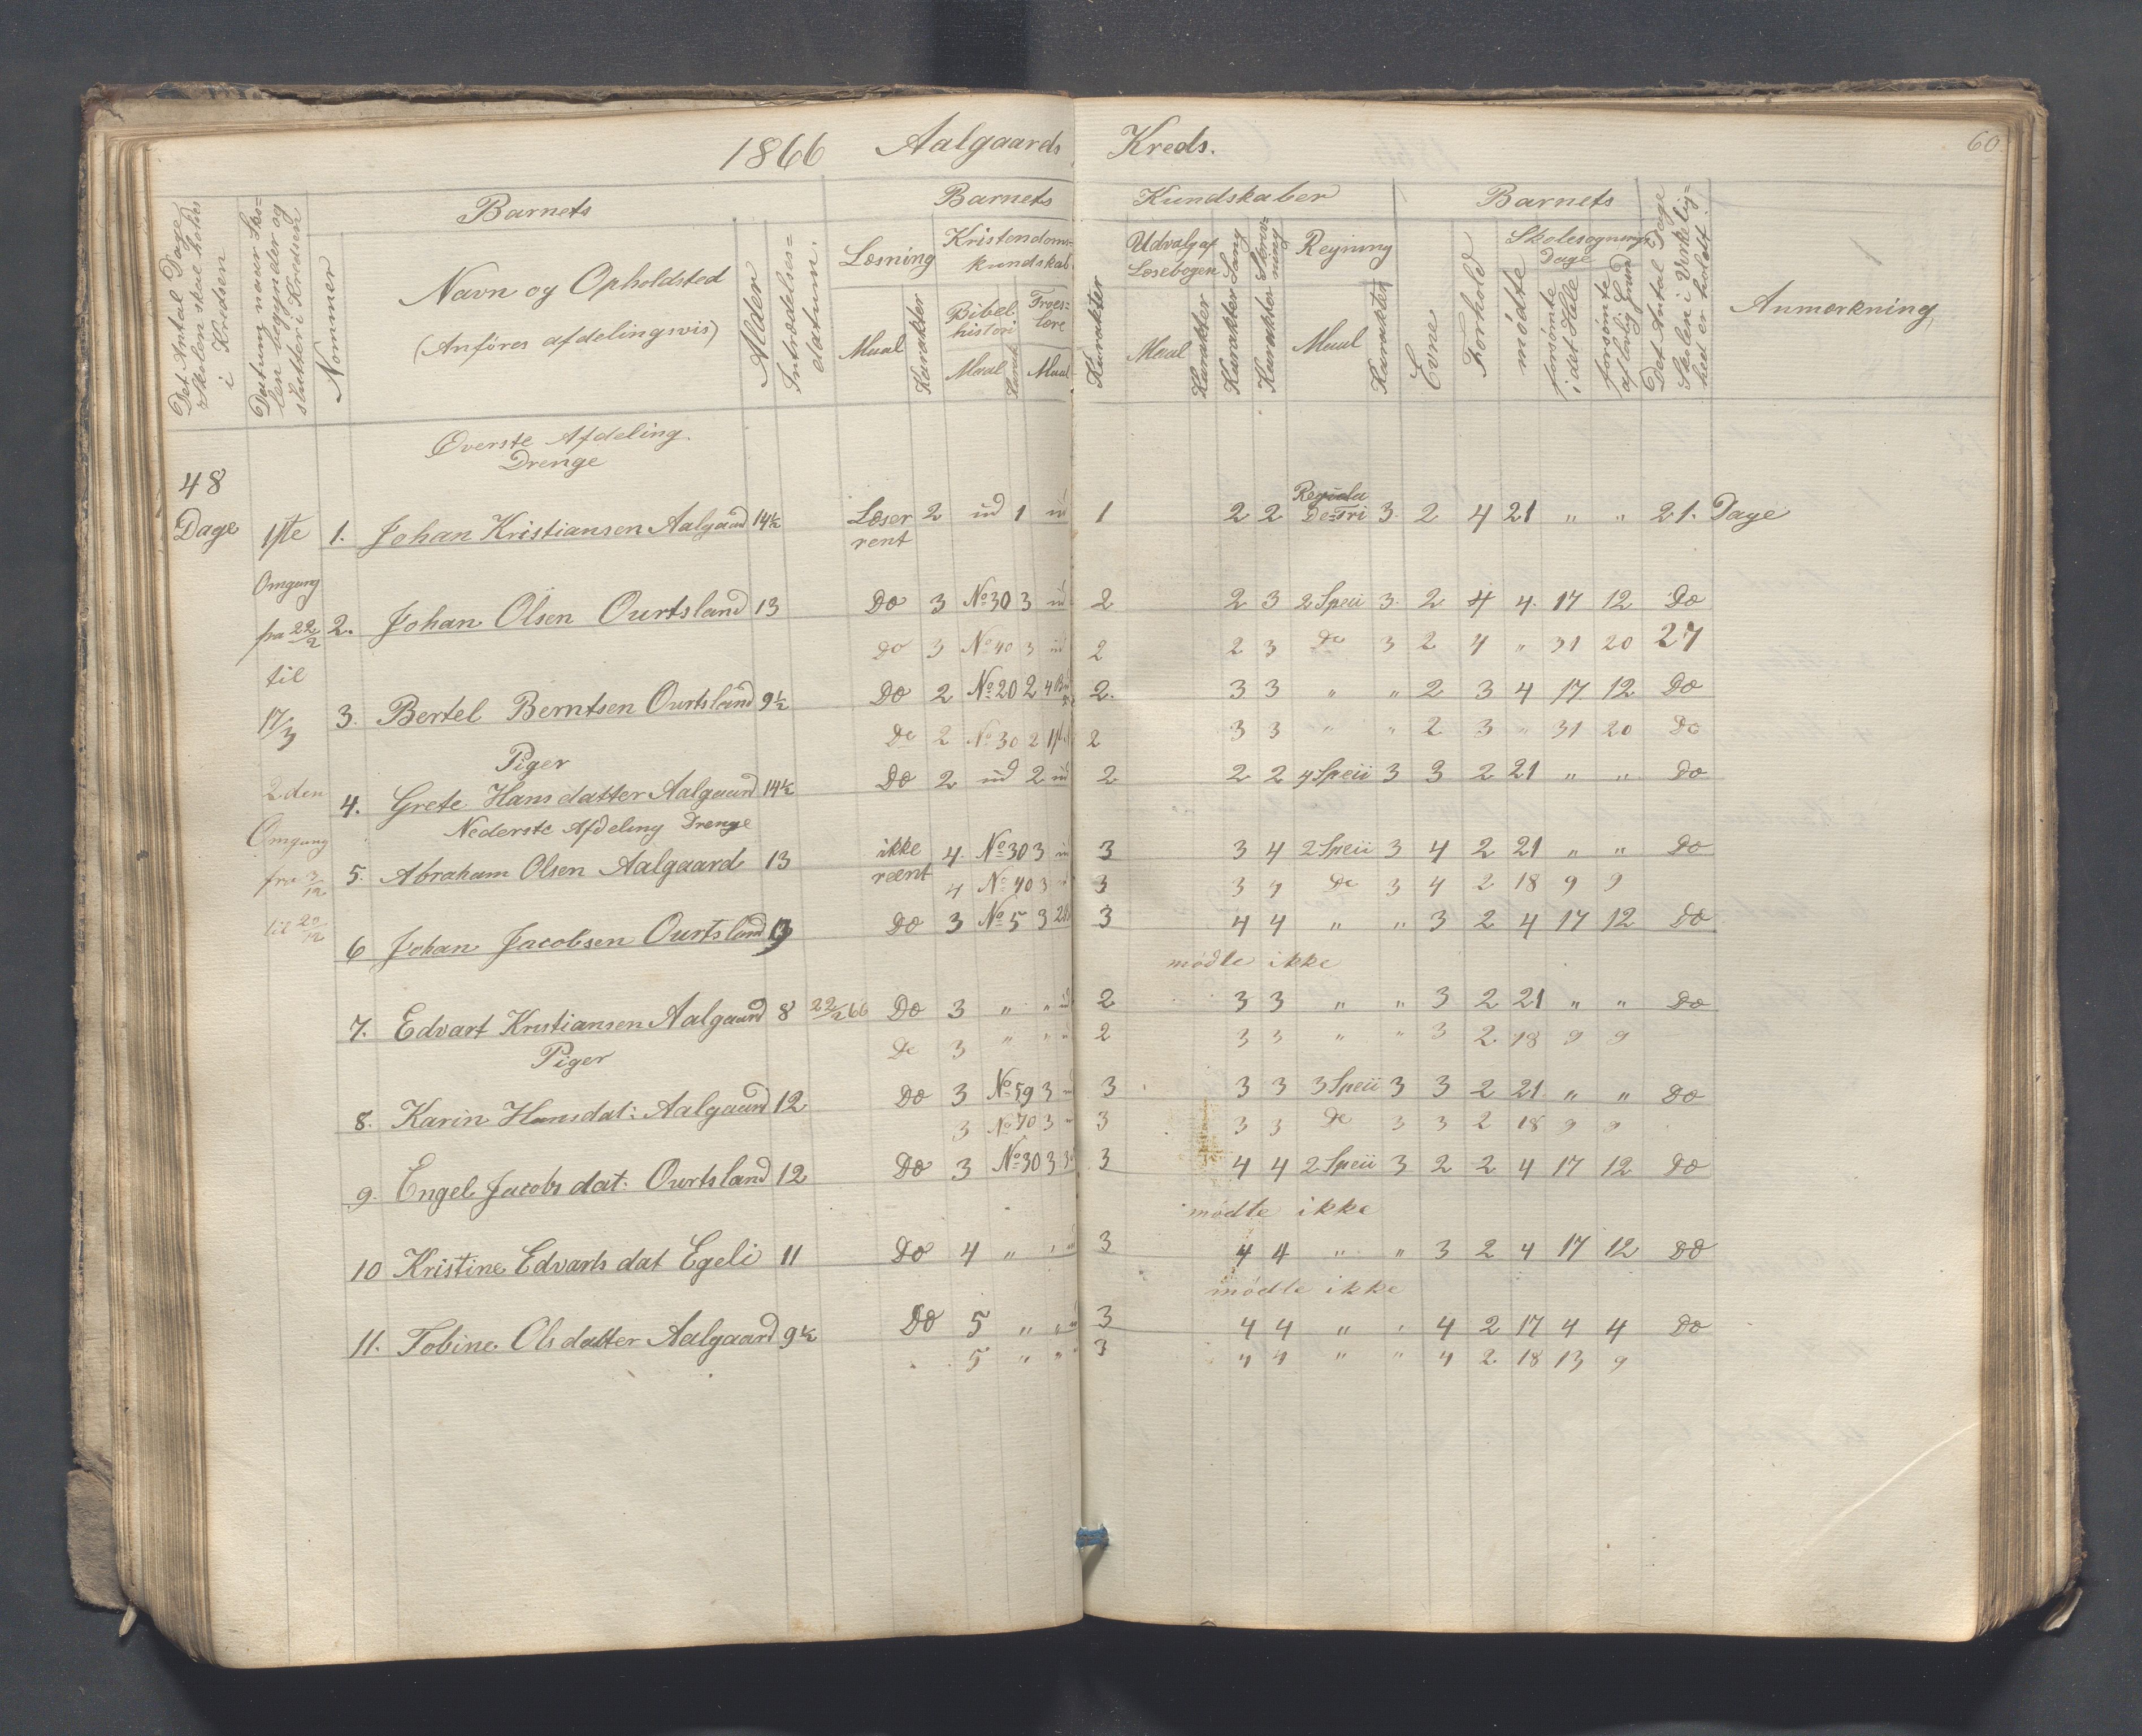 1866 Aalgaards Kreds. 60
Det Antal Dage Skolen skal holdes i Kredsen
Datum naar Skolen begynder og slutter i Kredsen
Nommer
Barnets
Navn og Opholdsted
(Anføres afdelingsvis)
Alder
Intrædelsesdatum.
Barnets Kundskaber
Læsning
Maal
Karakter
Kristendomskundskab
Bibelhistori
Maal
Karak
Troeslære
Maal
Karakter
Udvalg af Læsebogen
Maal
Karakter
Sang
Karakter
Skrivning
Karakter
Regning
Maal
Karakter
Barnets
Evne
Forhold
Skolesøgnings Dage
mødte
forsømte i det Hele
forsømte af lovlig Grund
Det Antal Dage Skolen i Virkelighed er holdt
Anmærkning
Øverste Afdeling.
Drenge
48 Dage
1ste Omgang fra 22/2 til 17/3
2den Omgang fra 3/12 til 22/12
1. Johan Kristiansen Aalgaard 14½ Læser rent 2 ud 1 ud 1 2 2 De=Tri 3 2 4 21 " " 21. Dage
2. Johan Olsen Ourtsland 13 Do 3 No 30 3 ud 2 2 3 2 Speii 3 2 4 4 17 12 Do
Do 3 No 40 3 ud 2 2 3 Do 3 2 4 " 31 20 27
3. Bertel Berntsen Ourtsland 9½ Do 2 No 20 2 2. 3 3 " " 2 3 4 17 12 Do
Do 2 No 30 2 2 3 3 " " 2 3 " 31 20 Do
Piger
4. Grete Hansdatter Aalgaard 14½ Do 2 ud 2 ud 2 2 2 4 Speii 3 3 2 21 " " Do
Nederste Afdeling Drenge
5. Abraham Olsen Aalgaard 13 ikke reent 4 No 30 3 3 3 4 2 Speii 3 4 2 21 " " Do
4 No 40 3 3 3 4 Do 3 4 2 18 9 9
6 Johan Jacobsen Ourtsland Do 3 No 5 3 3 4 4 " " 3 2 4 17 12 Do
mødte ikke
7. Edvart Kristiansen Aalgaard 8 22/2 66 Do 3 " " ud 2 3 3 " " 3 2 21 " " Do
Do 3 " " " 2 3 3 " " 3 2 18 9 9
Piger
8. Karin Hansdat: Aalgaard 12 Do 3 No 59 3 3 3 3 3 Speii 3 3 2 21 " " Do
3 No 70 3 3 3 3 Do 3 3 2 18 9 9
9. Engel Jacobsdat: Ourtsland 12 Do 3 No 30 3 3 4 4 2 Speii 3 2 2 4 17 12 Do
mødte ikke
10 Kristine Edvarts dat Egeli 11 Do 4 " " 3 4 4 " " 3 2 4 17 12 Do
mødte ikke
11. Tobine Olsdatter Aalgaard 9½ Do 5 " " 3 4 4 " " 4 2 17 4 4 Do
5 " " 3 4 4 " " 4 2 18 13 9